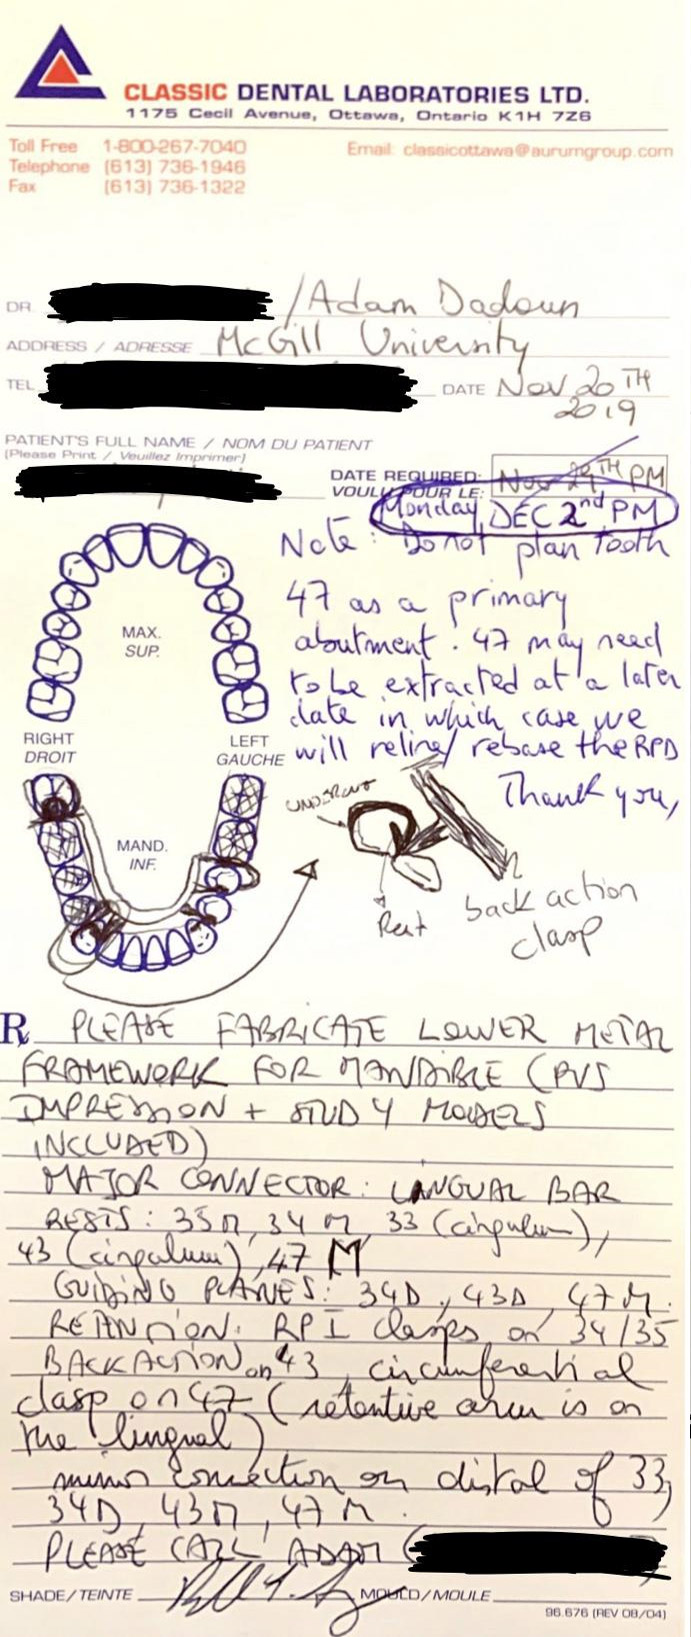 CLASSIC DENTAL LABORATORIES LTD.
1175 Cecil Avenue, Ottawa, Ontario K1H 7Z6
Toll Free 1-800-267-7040
Telephone (613) 736-1946
Fax (613) 736-1322
Email: classicottawa@aurumgroup.com
DR. /Adam Dadoun
ADDRESS / ADRESSE McGill University
TEL DATE Nov 20TH
2019
PATIENT'S FULL NAME / NOM DU PATIENT
(Please Print / Veuillez Imprimer)
DATE REQUIRED: Nov 29TH PM
VOULU POUR LE:
Monday, DEC 2nd PM
Note: Do not plan tooth
47 as a primary
aboutment. 47 may need
to be extracted at a later
date in which case we
will reline/ rebase the RPD
Thank you,
MAX.
SUP.
RIGHT
DROIT
LEFT
GAUCHE
MAND.
INF.
UNDERCUT
Rest
back action
clasp
R PLEASE FABRICATE LOWER METAL
FRAMEWORK FOR MANDIBLE (PVS
IMPRESSION + STUDY MODELS
INCLUDED)
MAJOR CONNECTOR: LINGUAL BAR
RESTS: 35M, 34 M, 33 (cingulum),
43 (cingulum), 47 M
GUIDING PLANES: 34D, 43D, 47M.
RETENTION: RPI clasps on 34/35
BACK ACTION on 43, circumferential
clasp on 47 (retentive arm is on
the lingual)
minor connection on distal of 33,
34D, 43M, 47M.
PLEASE CALL ADAM (
SHADE/TEINTE MOULD/MOULE
96.676 (REV 08/04)